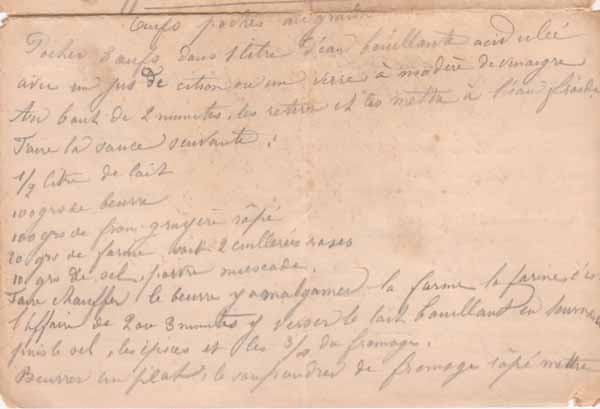 Œufs pochés au gratin
Pocher 8 œufs dans 1 litre d'eau bouillante acidulée
avec un jus de citron ou un verre à madère de vinaigre
Au bout de 2 minutes, les retirer et les mettre à l'eau froide.
Faire la sauce suivante :
1/2 litre de lait
100 grs de beurre
100 grs de from. gruyère râpé
20 grs de farine soit 2 cuillerées rases
10 grs de sel, poivre muscade.
Faire chauffer le beurre y amalgamer la farine la farine, c'est
l'affaire de 2 ou 3 minutes y verser le lait bouillant en
puis le sel, les épices et les 3/4 du fromage.
Beurrer un plat, le saupoudrer de fromage râpé mettre